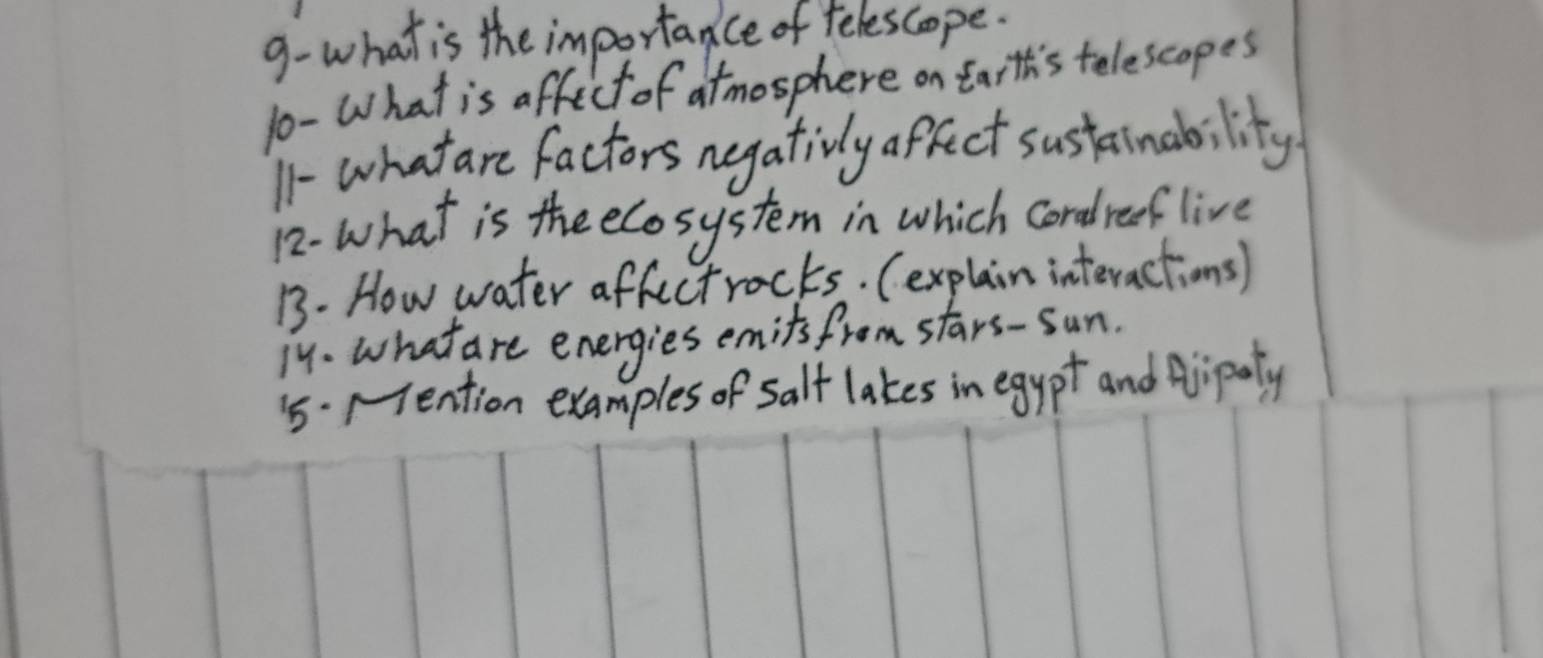 9- what is the importance of telescope.
10- what is affect of atmosphere on Earth's telescopes
11- what are factors negativly affect sustainability.
12- what is the ecosystem in which coral reef live
13. How water affect rocks. (explain interactions)
14. what are energies emits from stars - sun.
15. Mention examples of salt lakes in egypt and